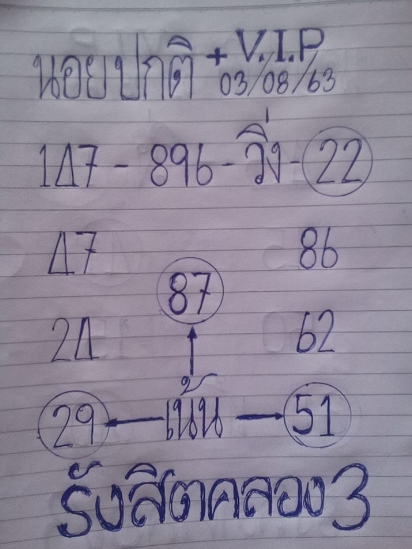 นอยปกติ + V.I.P
03/08/63
147 - 896 - วิ่ง - 22
47 86
87
24 62
29 เน้น 51
รังสิตคลอง 3